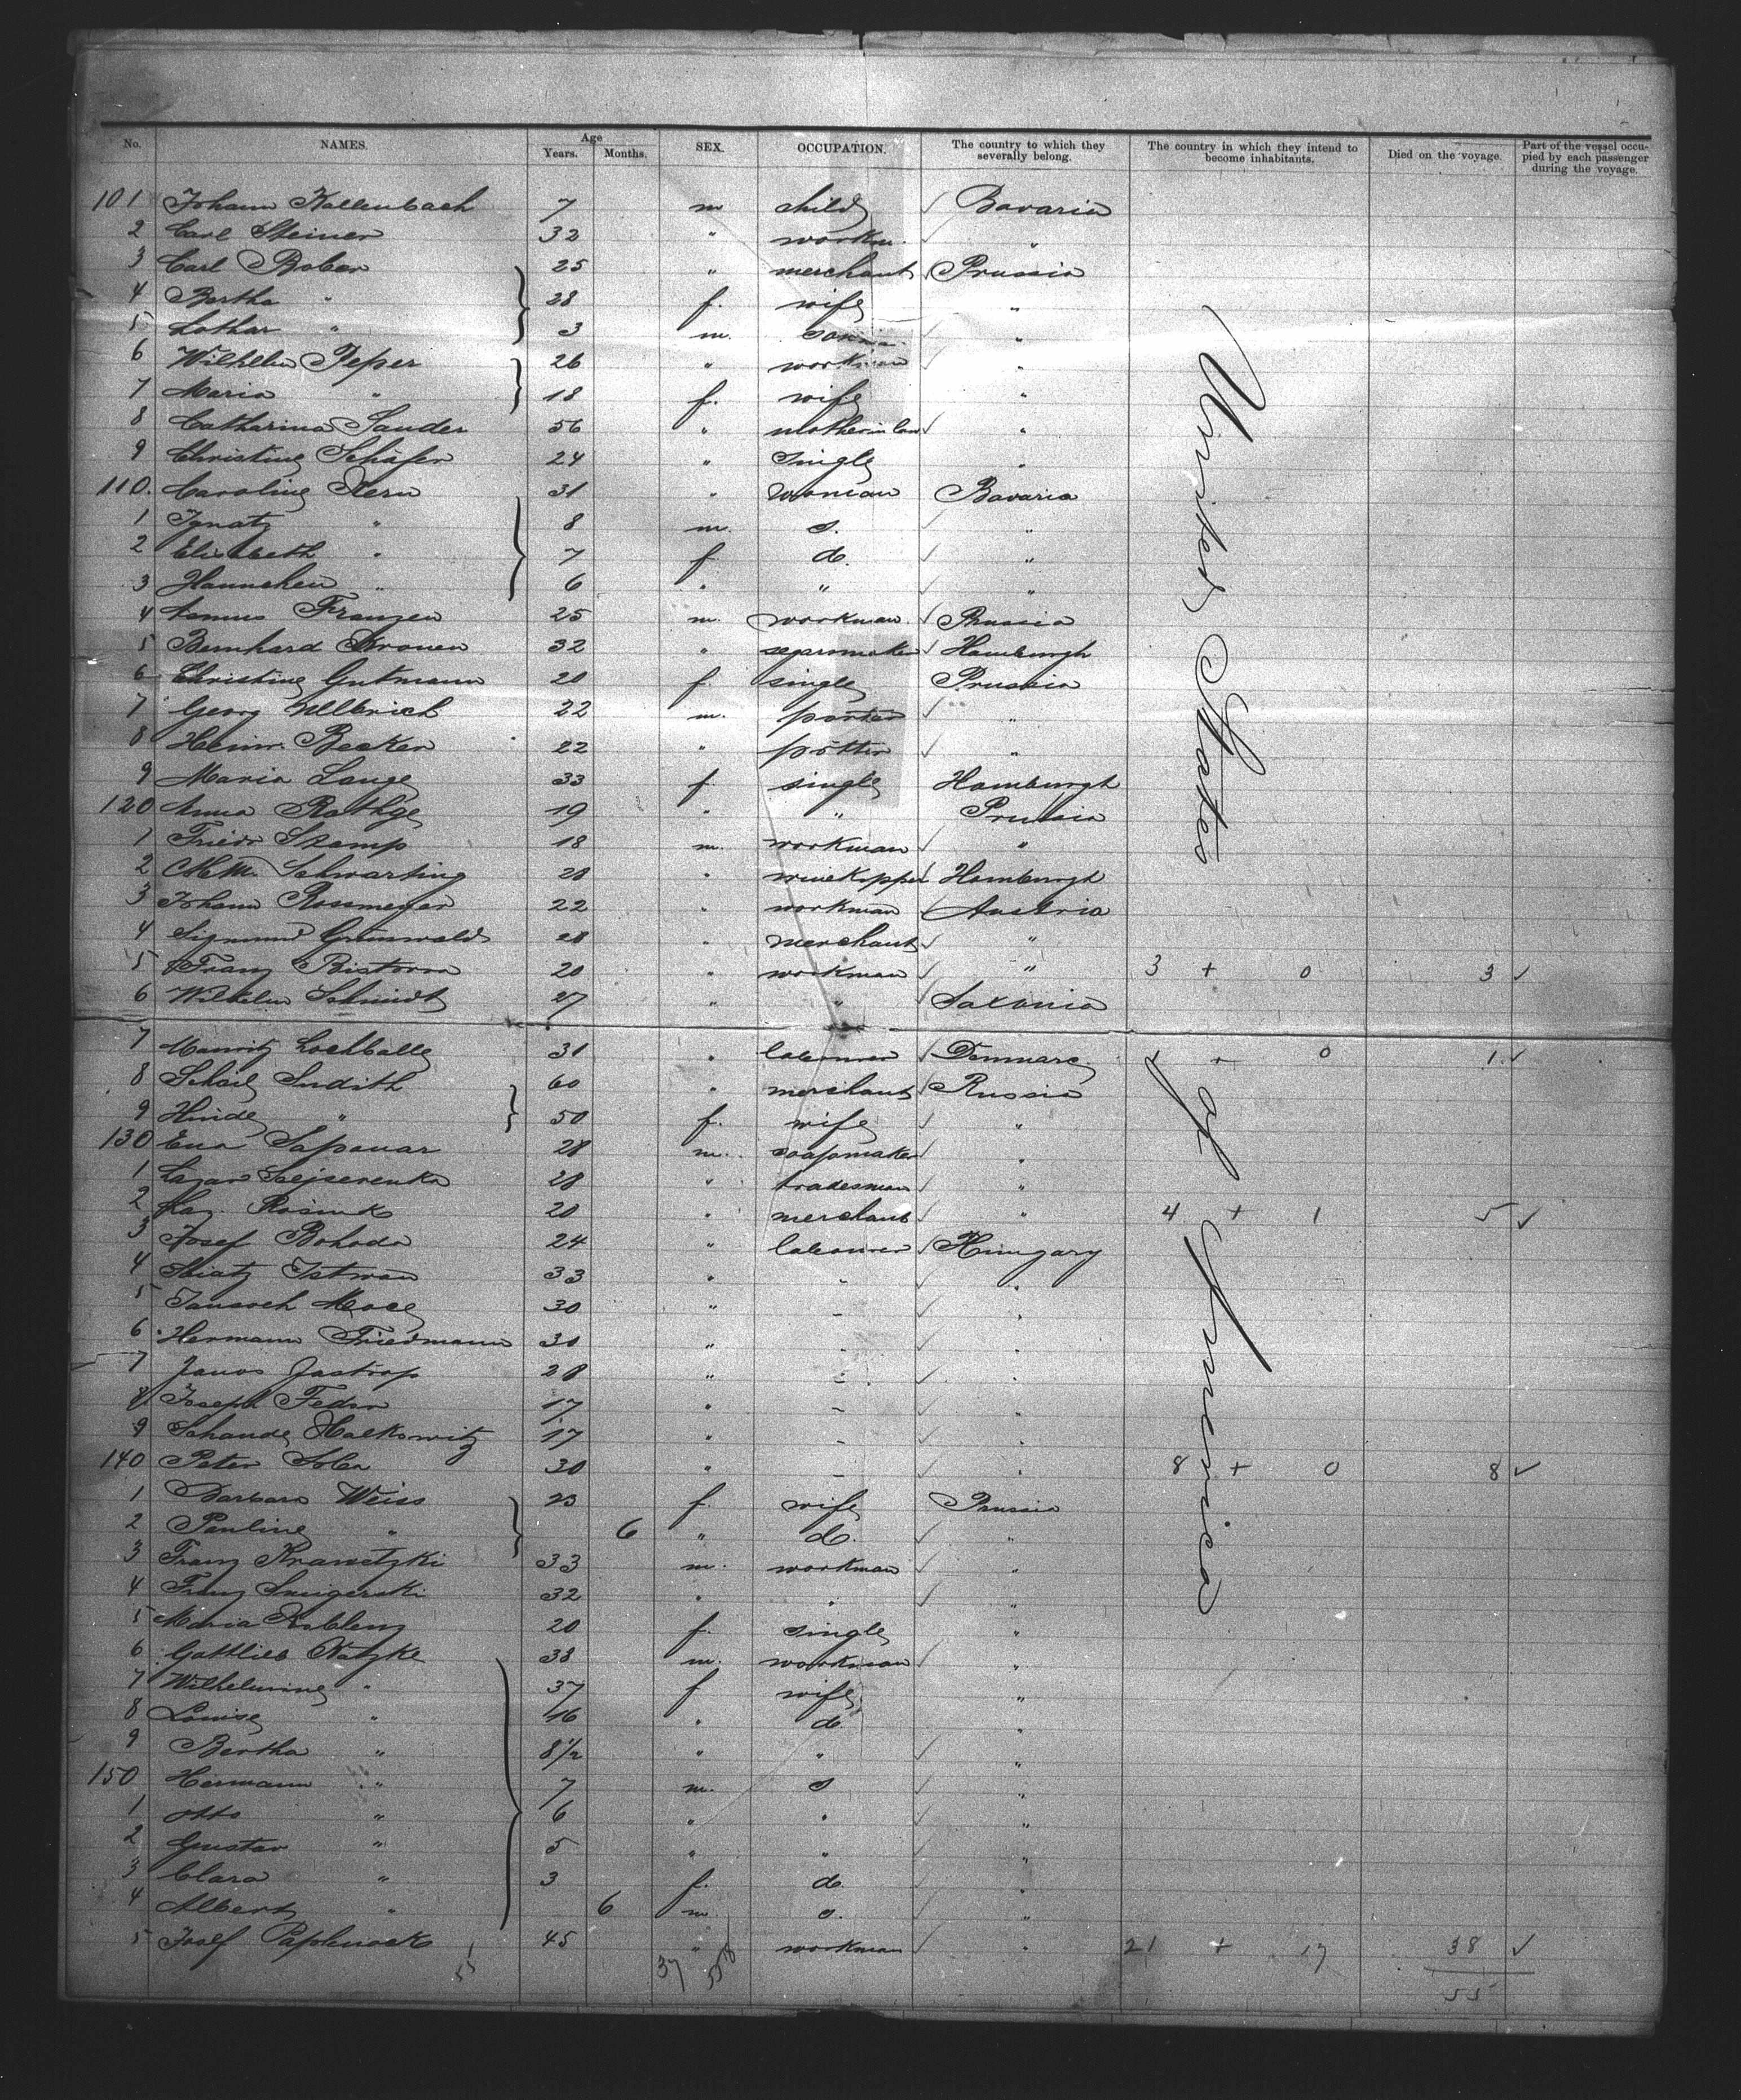 No. NAMES. Age Years. Months. SEX. OCCUPATION. The country to which they severally belong. The country in which they intend to become inhabitants. Died on the voyage. Part of the vessel occupied by each passenger during the voyage.
United States of America
101 Johann Kallenbach 7 m child ✓ Bavaria
2 Carl Steiner 32 " workm. ✓ "
3 Carl Bober 25 " merchant Prussia
4 Bertha " 28 f. wife "
5 Lothar " 3 m. ✓ "
6 Wilhelm Peper 26 " workman ✓ "
7 Maria " 18 f. wife "
8 Catharina Sander 56 " motherinlaw ✓ "
9 Christine Schäfer 24 " single "
110. Caroline Kern 31 " woman Bavaria
1 Ignatz " 8 m. s. ✓ "
2 Elisabeth " 7 f d. ✓ "
3 Hannchen " 6 " " ✓ "
4 Asmus Franzen 25 m. workman ✓ Prussia
5 Bernhard Kronen 32 " segarmaker ✓ Hamburgh
6 Christine Gutmann 20 f. single Prussia
7 Georg Ullbrich 22 m. porter ✓ "
8 Heinr. Becker 22 " potter ✓ "
9 Maria Lange 33 f. single Hamburgh
120 Anna Rathge 19 " " Prussia
1 Friedr Stamp 18 m. workman ✓ "
2 Schwarting 28 " Hamburgh
3 Johann Rossmeyer 22 " workman ✓ Austria
4 Sigmund Grünwald 28 " merchant ✓ "
5 Franz 20 " workman ✓ " 3 + 0 3 ✓
6 Wilhelm Schmidt 27 " " ✓ Saxonia
7 31 " labourer ✓ Denmarc 1 + 0 1 ✓
8 Judith 60 " merchant ✓ Russia
9 Hinde " 50 f. wife ✓ "
130 Saponar 28 m. soapmaker ✓ "
1 Lazar 28 " tradesman ✓ "
2 20 " merchant ✓ " 4 + 1 5 ✓
3 Josef Bohoda 24 " labourer ✓ Hungary
4 Istwan 33 " " ✓ "
5 30 " " ✓ "
6 Hermann Friedmann 30 " " ✓ "
7 Janos Jastrop 28 " " ✓ "
8 Joseph Fedor 17 " " ✓ "
9 Halkowitz 17 " " ✓ "
140 Peter 30 " " ✓ " 8 + 0 8 ✓
1 Barbara Weiss 23 f. wife Prussia
2 Pauline " 6 " d. ✓ "
3 Franz Krawetzki 33 m. workman ✓ "
4 Franz 32 " " ✓ "
5 Maria Koblenz 20 f. single "
6 Gottlieb Natzke 38 m. workman ✓ "
7 Wilhelmine " 37 f wife "
8 Louise " 16 " d. "
9 Bertha " 8½ " " ✓ "
150 Hermann " 7 m. s ✓ "
1 Otto " 6 " " ✓ "
2 Gustav " 5 " " ✓ "
3 Clara " 3 f. d. ✓ "
4 Albert " 6 m s. ✓ "
5 Josef 45 " workman ✓ " 21 + 17 38 ✓
37 55